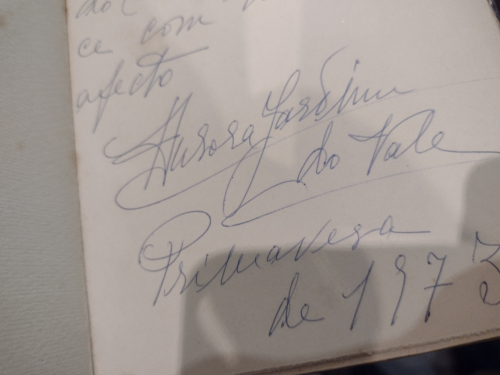 ce com
afecto
Aurora Jardim
do Vale
Primavera
de 1973